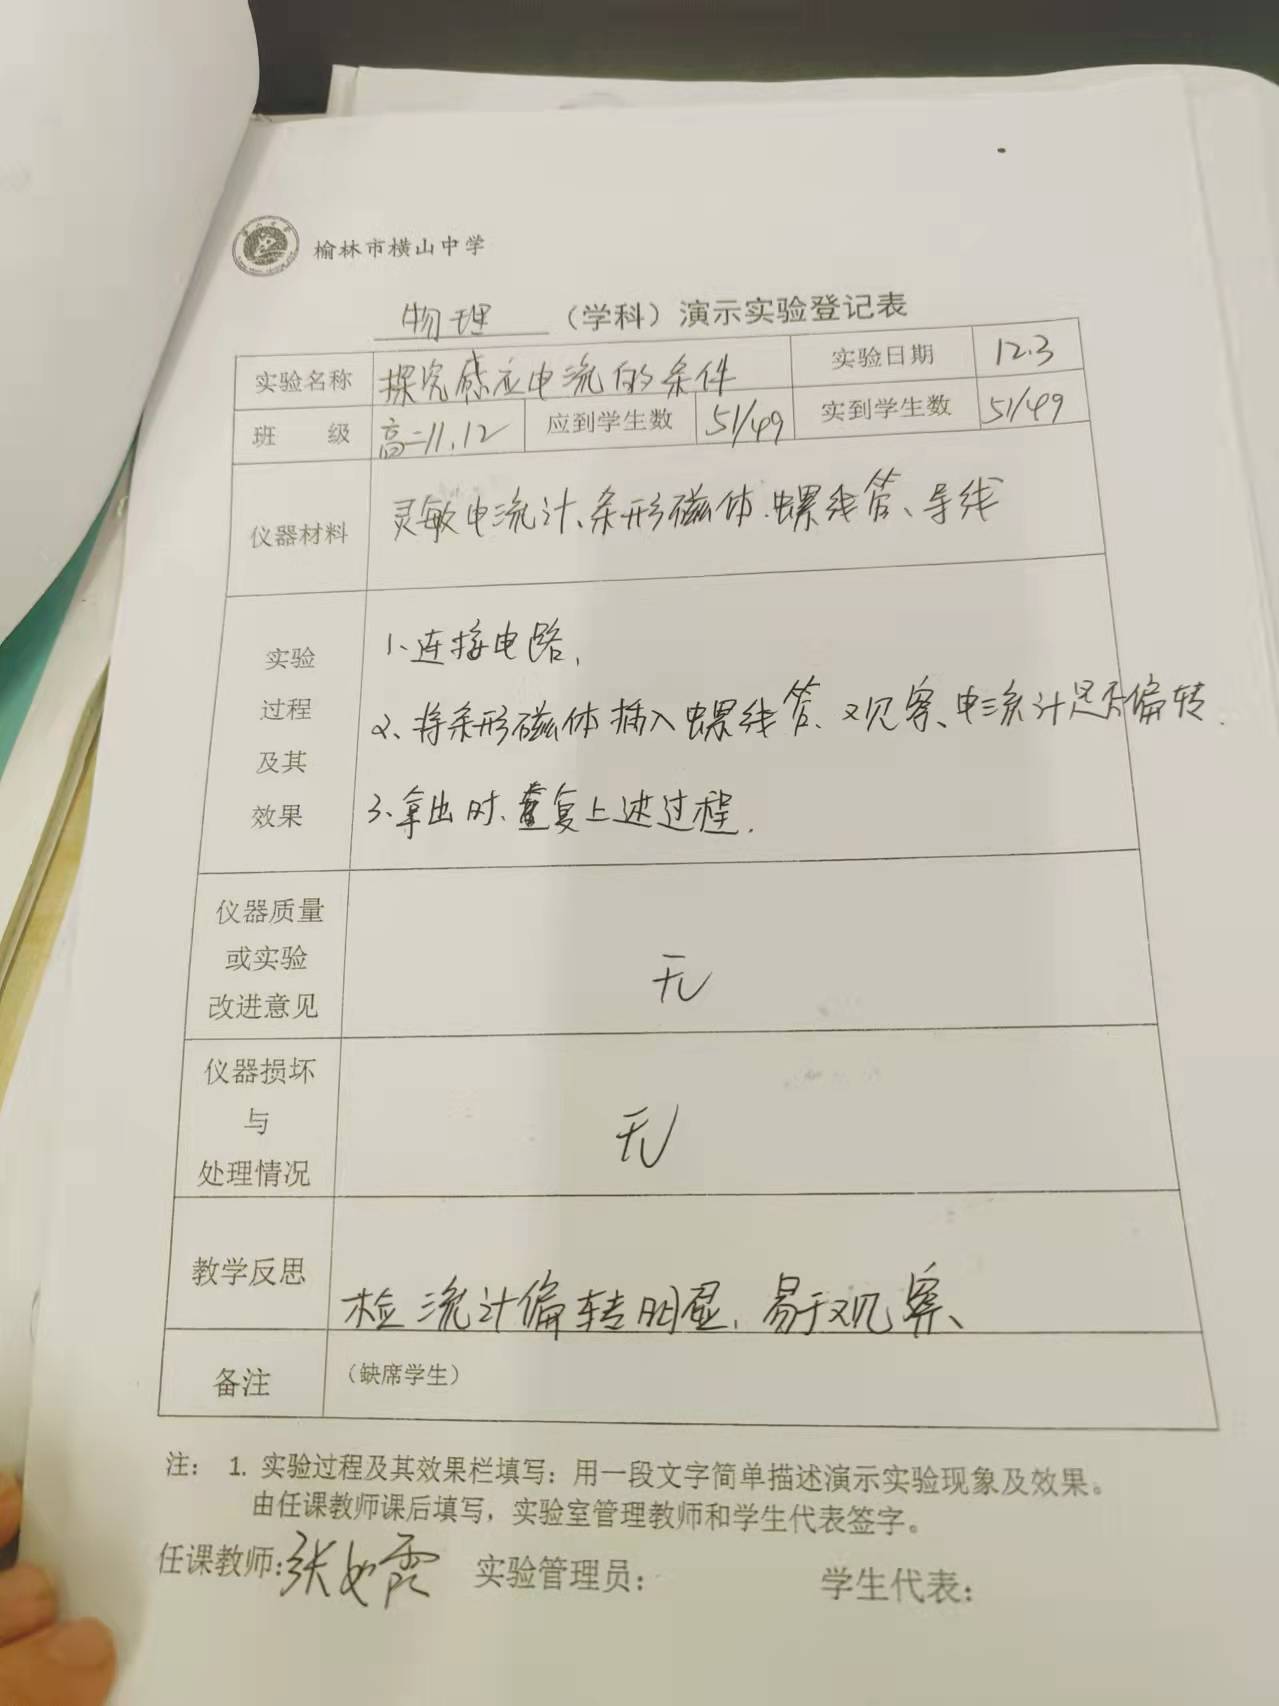 榆林市横山中学
物理（学科）演示实验登记表
实验名称 探究感应电流的条件 实验日期 12.3
班 级 高二11.12 应到学生数 51/49 实到学生数 51/49
仪器材料 灵敏电流计、条形磁体、螺线管、导线
实验
过程
及其
效果
1、连接电路,
2、将条形磁体插入螺线管、观察、电流计是否偏转.
3、拿出时、重复上述过程.
仪器质量
或实验
改进意见
无
仪器损坏
与
处理情况
无
教学反思 检流计偏转明显,易于观察、
备注 （缺席学生）
注： 1. 实验过程及其效果栏填写：用一段文字简单描述演示实验现象及效果。
由任课教师课后填写，实验室管理教师和学生代表签字。
任课教师: 张如霞 实验管理员: 学生代表: